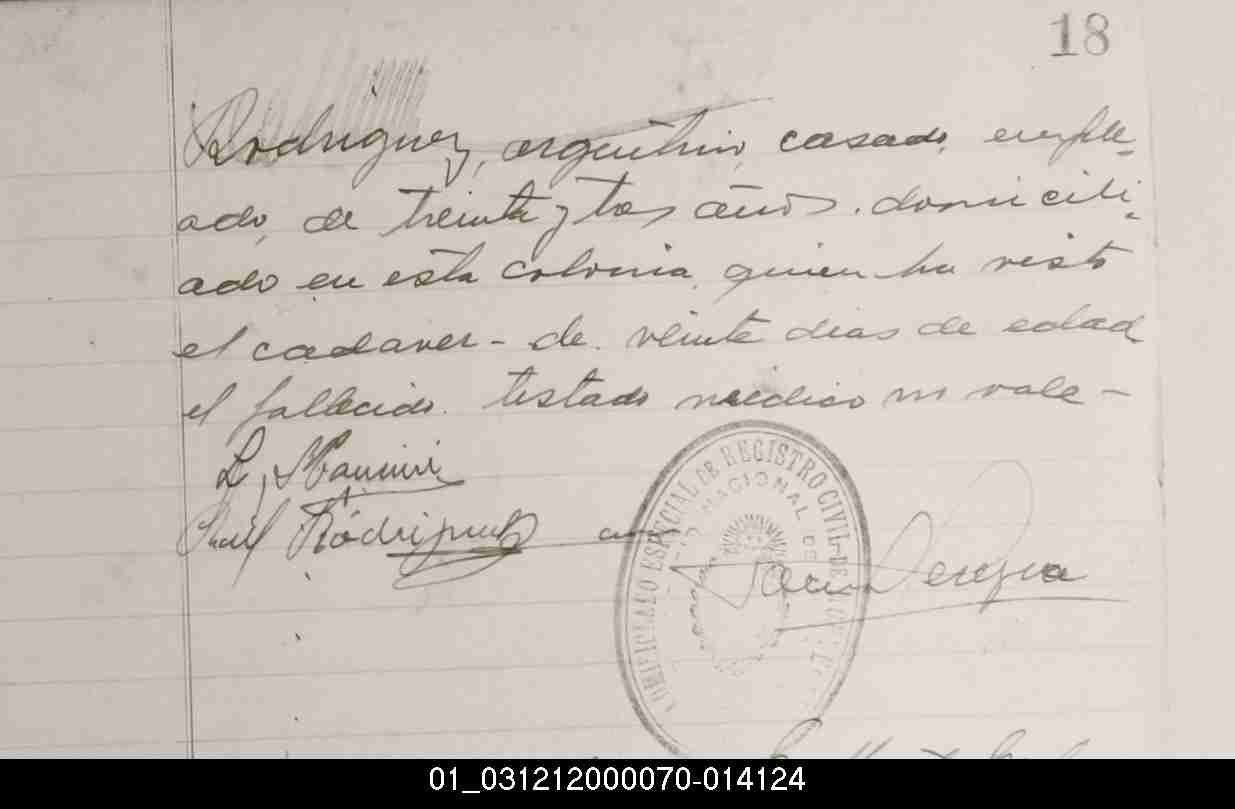 18
Rodriguez, argentino, casado, emple-
ado, de treinta y tres años. domicili-
ado en esta colonia, quien ha visto
el cadaver - de veinte dias de edad
el fallecido. testado medico no vale -
L. Mannini
Raúl Rodriguez
REGISTRO CIVIL
NACIONAL DE
01_031212000070-014124